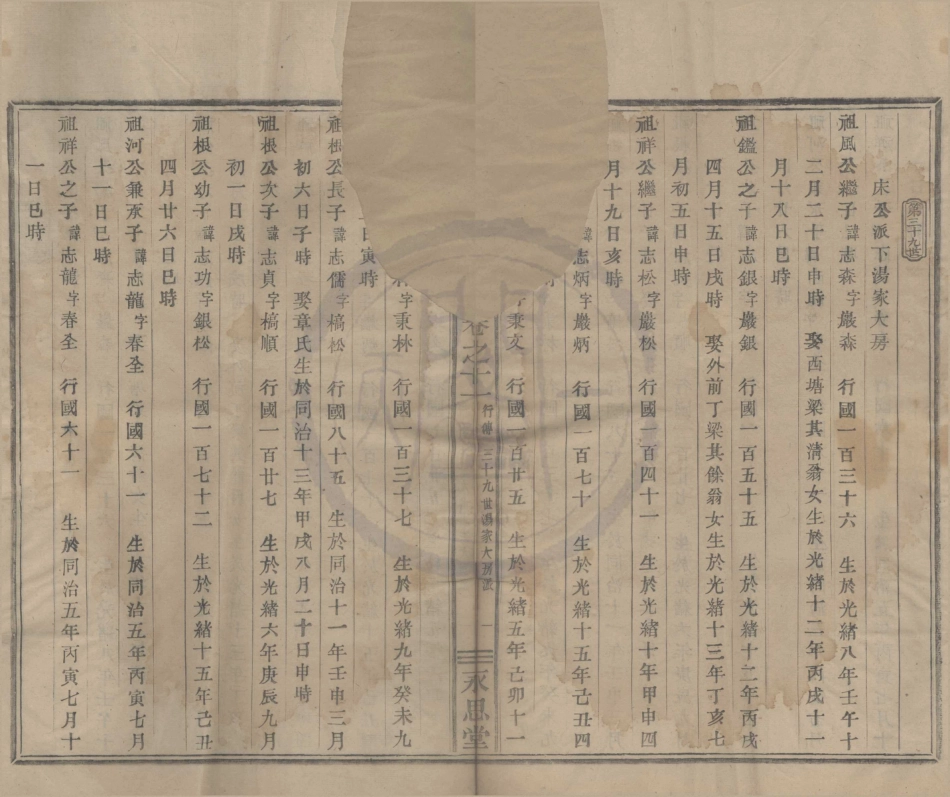 第三十九世
床公派下湯家大房
祖風公繼子諱志森字嚴森 行國一百三十六 生於光緒八年壬午十
二月二十日申時 娶酉塘梁其清翁女生於光緒十二年丙戌十一
月十八日巳時
祖鑑公之子諱志銀字嚴銀 行國一百五十五 生於光緒十二年丙戌
四月十五日戌時 娶外前丁梁其餘翁女生於光緒十三年丁亥七
月初五日申時
祖祥公繼子諱志松字嚴松 行國一百四十一 生於光緒十年甲申四
月十九日亥時
諱志炳字嚴炳 行國一百七十 生於光緒十五年己丑四
時
字秉文 行國一百廿五 生於光緒五年己卯十一
卷之十一 行傳 三十九世湯家大房派 一 永思堂
字秉林 行國一百三十七 生於光緒九年癸未九
日寅時
祖根公長子諱志儒字槁松 行國八十五 生於同治十一年壬申三月
初六日子時 娶章氏生於同治十三年甲戌八月二十日申時
祖根公次子諱志貞字槁順 行國一百廿七 生於光緒六年庚辰九月
初一日戌時
祖根公幼子諱志功字銀松 行國一百七十二 生於光緒十五年己丑
四月廿六日巳時
祖河公兼承子諱志龍字春全 行國六十一 生於同治五年丙寅七月
十一日巳時
祖祥公之子諱志龍字春全 行國六十一 生於同治五年丙寅七月十
一日巳時